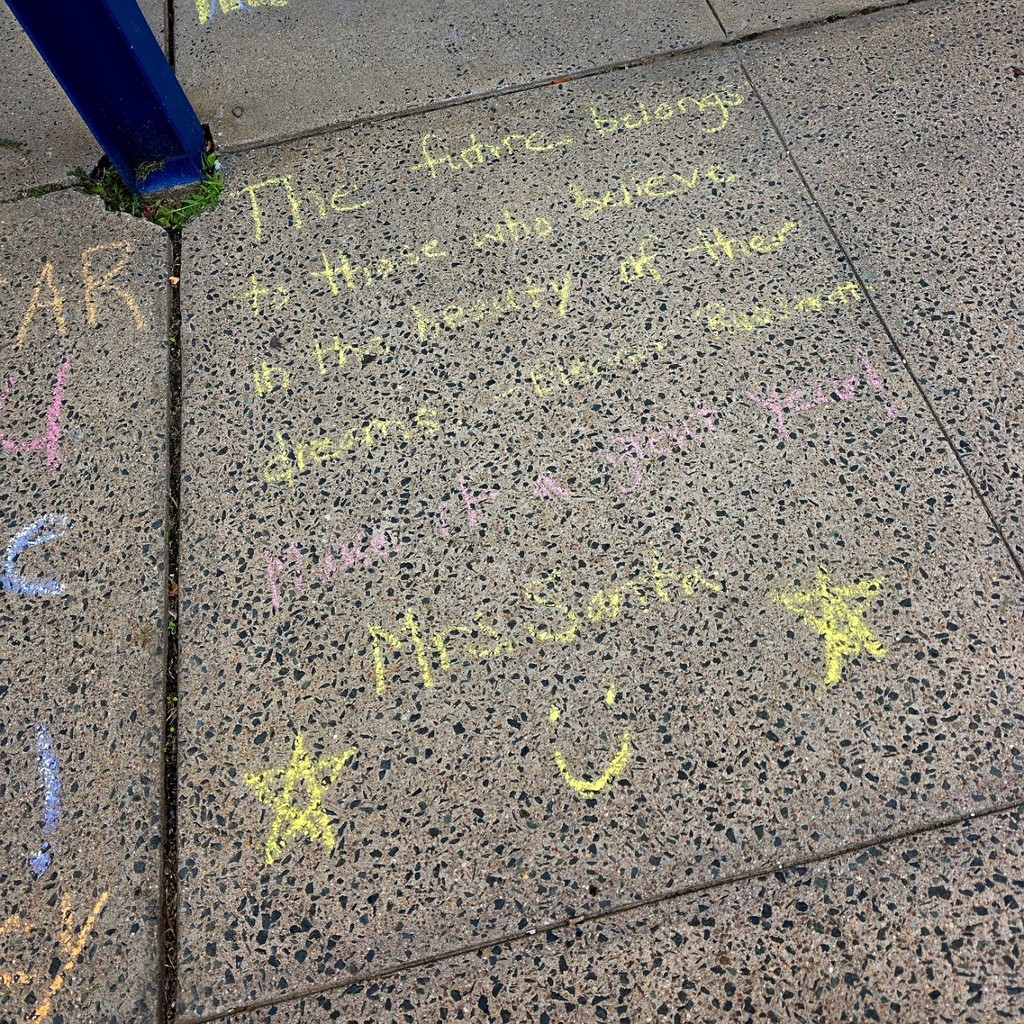 The future belongs
to those who believe
in the beauty of their
dreams - Eleanor Roosevelt
Make it a great Year!
Mrs. Santa
AR